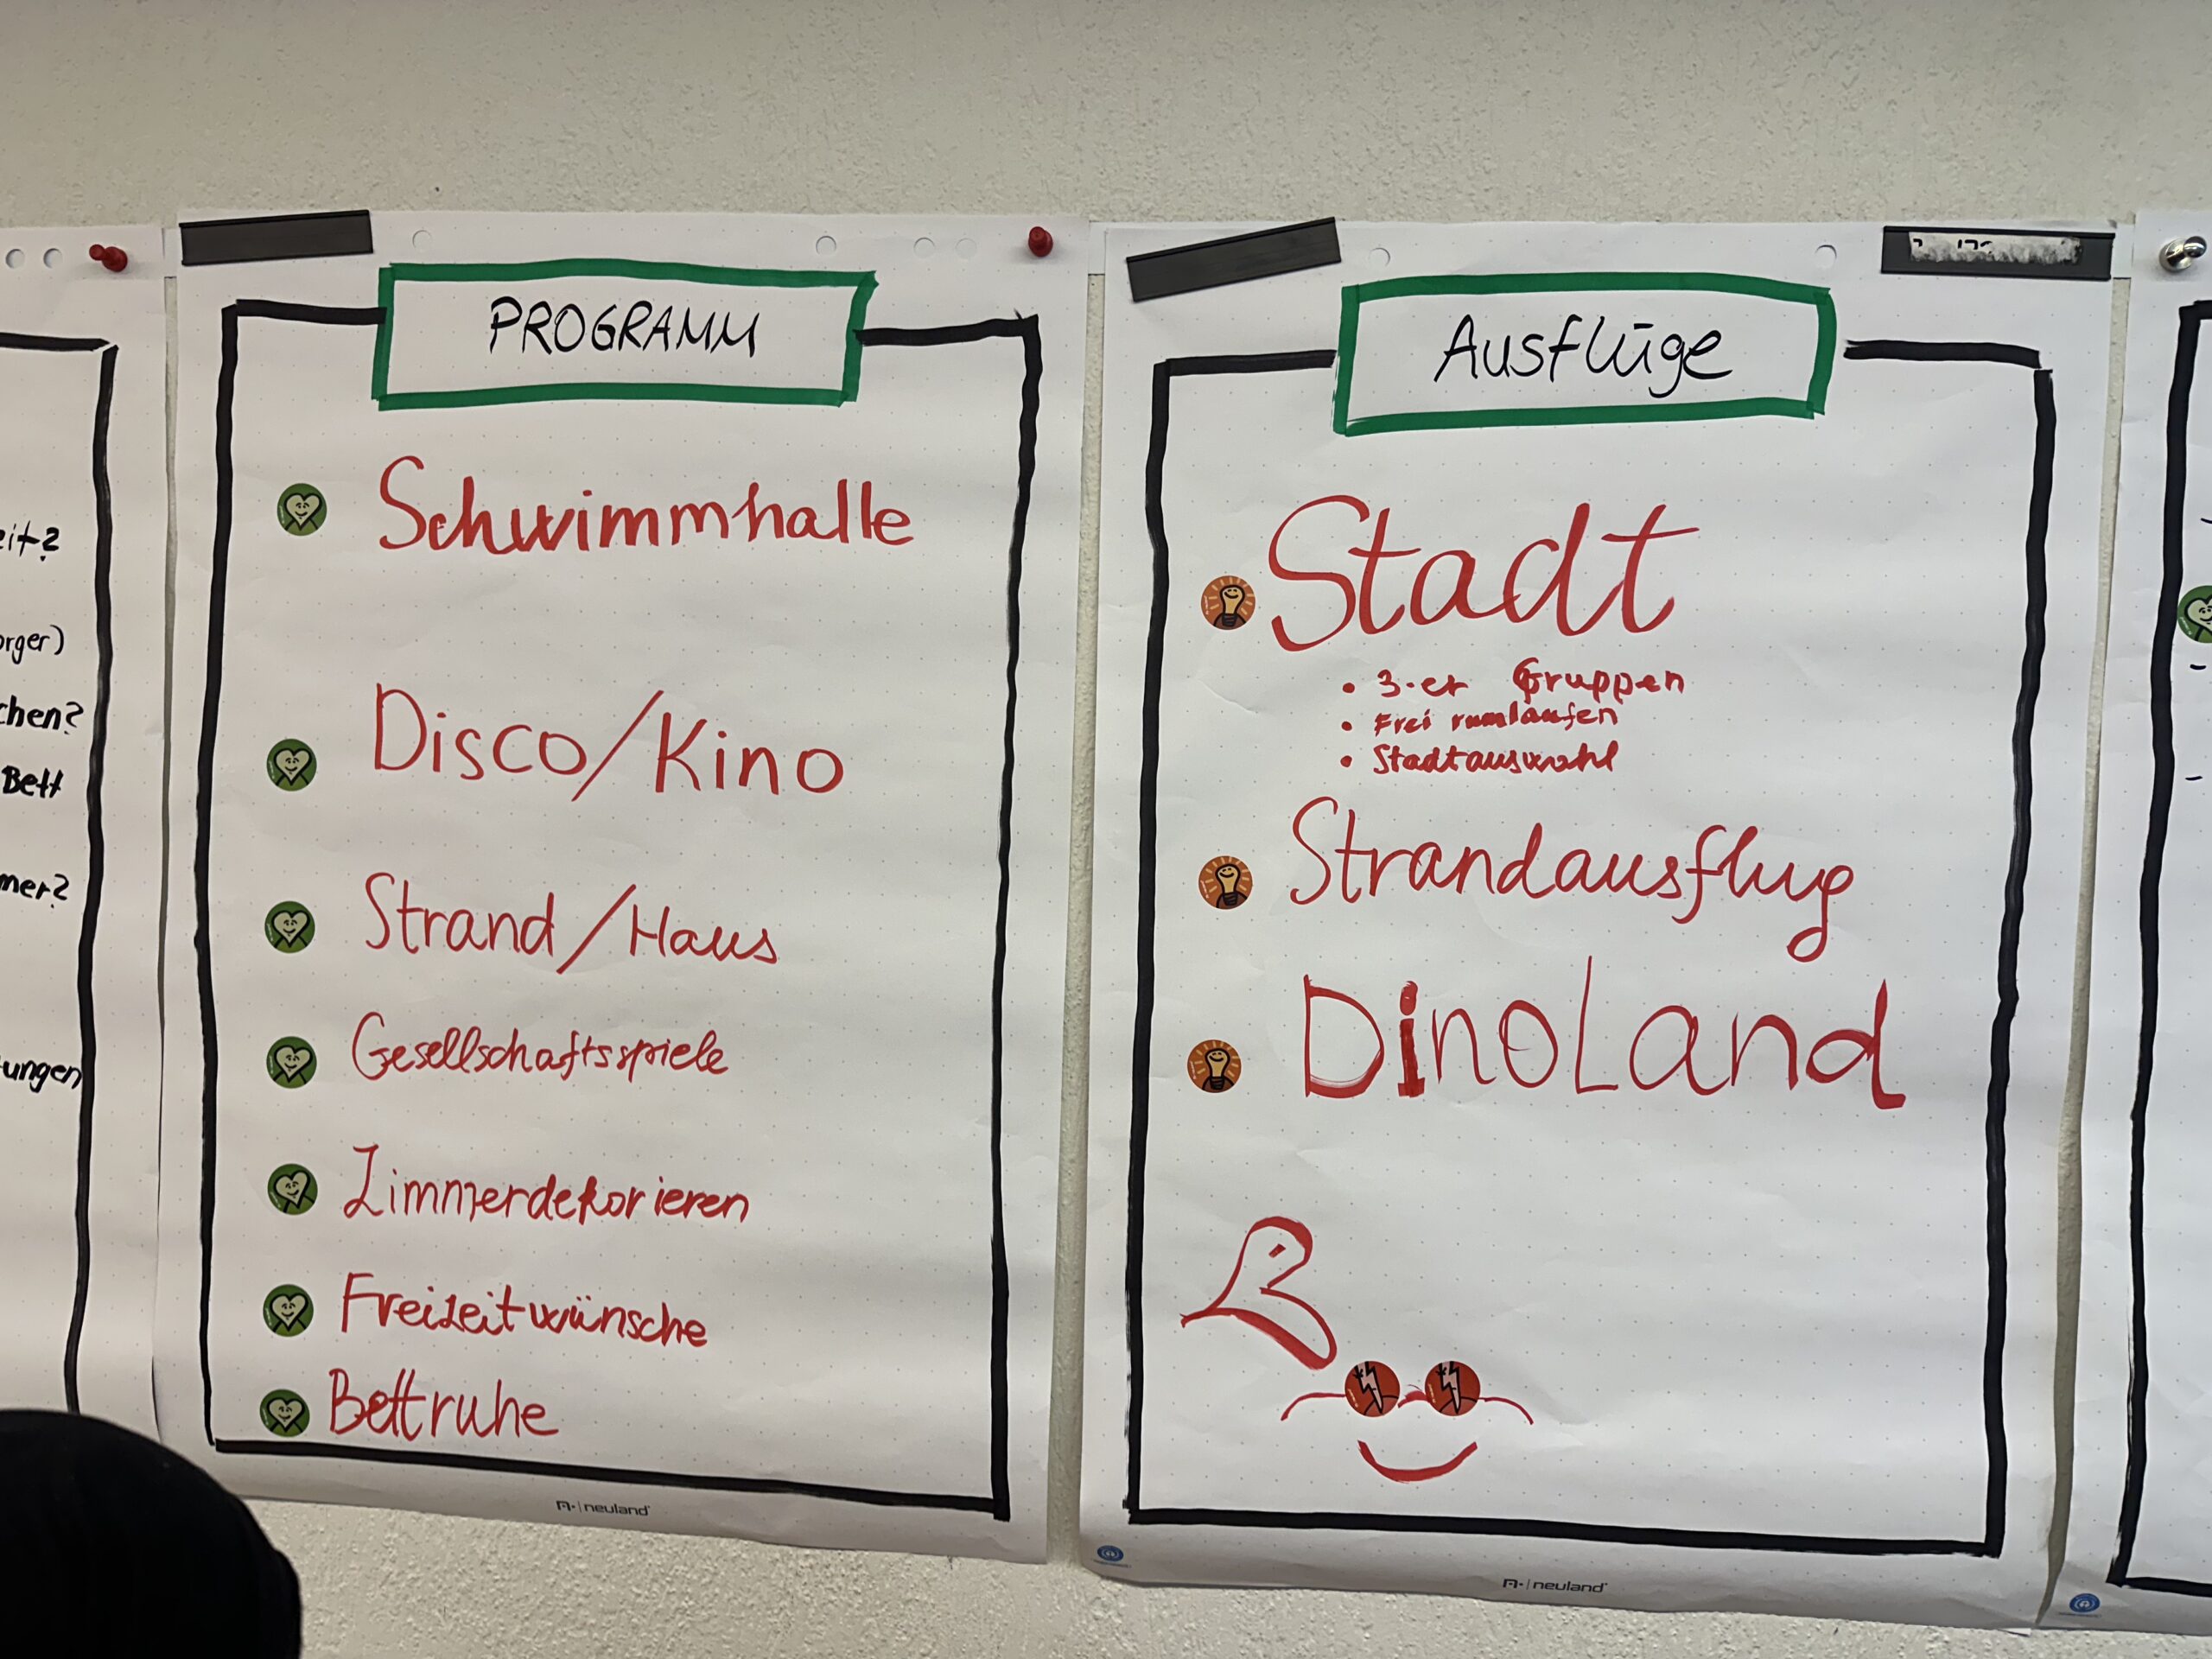 eit?
orger)
chen?
Bett
mer?
ungen
PROGRAMM
Schwimmhalle
Disco/Kino
Strand/Haus
Gesellschaftsspiele
Zimmerdekorieren
Freizeitwünsche
Bettruhe
neuland
Ausflüge
Stadt
• 3-er Gruppen
• Frei rumlaufen
• Stadtauswahl
Strandausflug
DinoLand
neuland